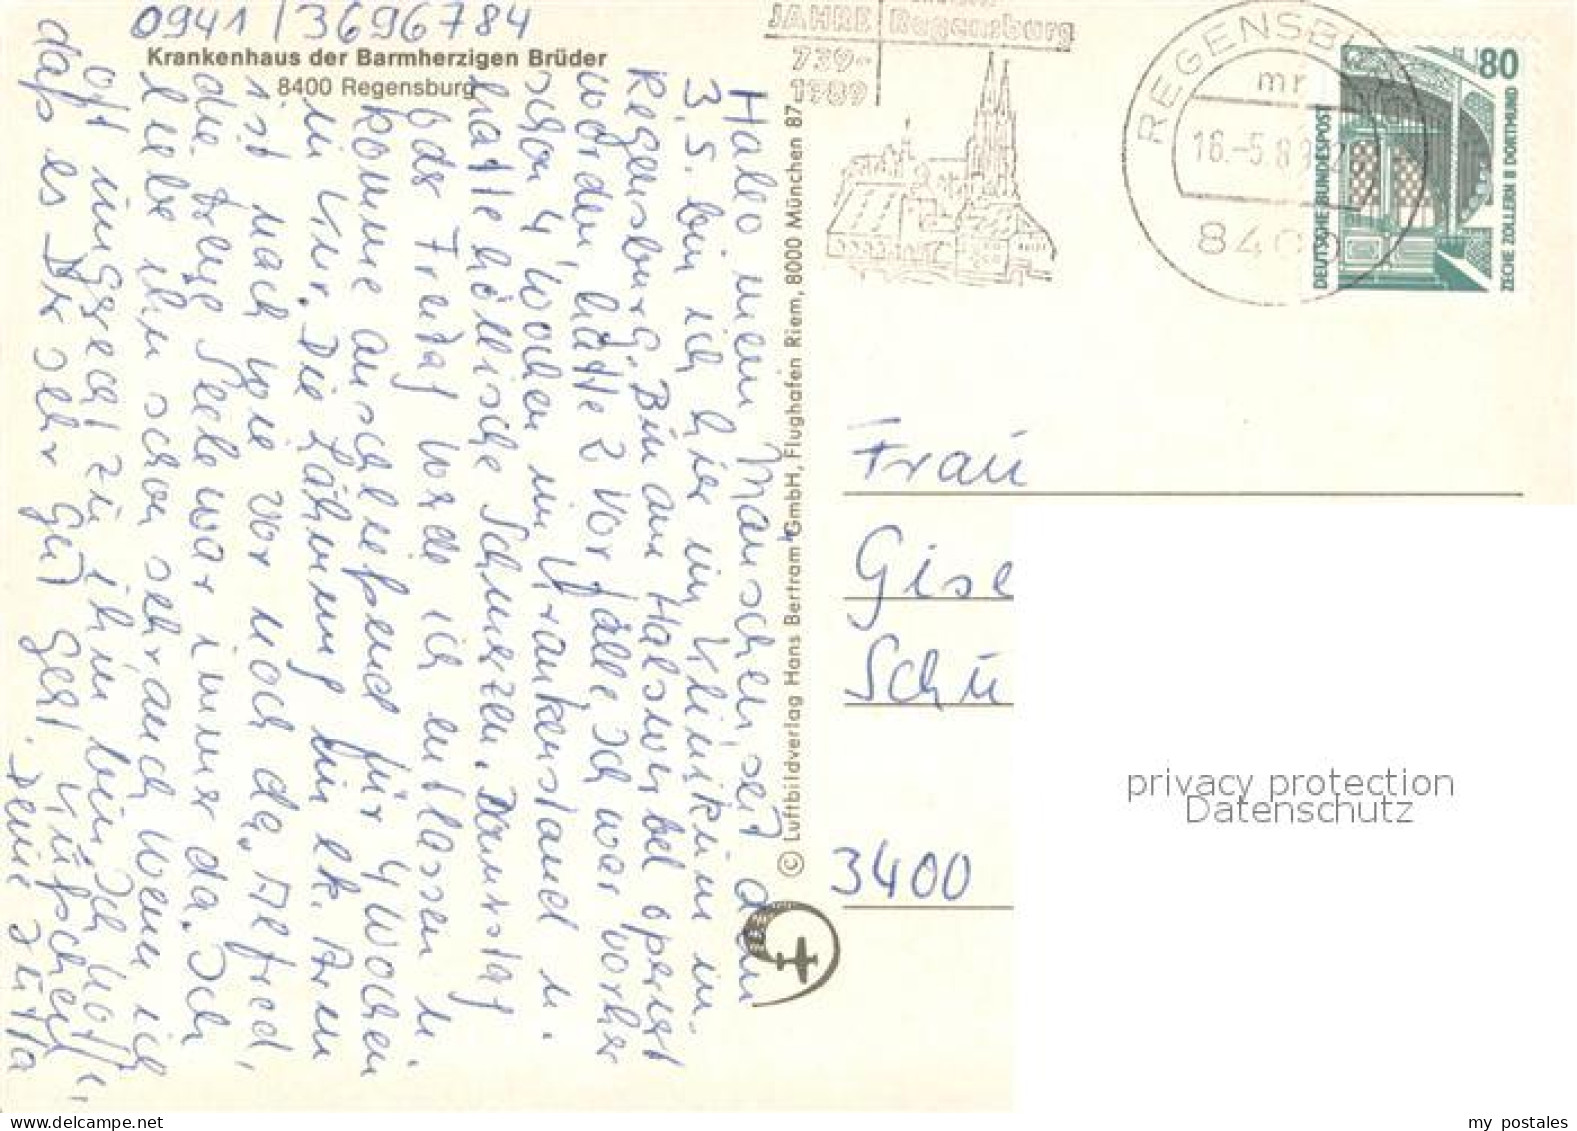 0941 / 3696784
Krankenhaus der Barmherzigen Brüder
8400 Regensburg
Hallo mein Mauschen, seit dem
3.5. bin ich hier im Klinikum in
Regensburg. Bin am Halswirbel operiert
worden, hatte 2 Vorfälle. Ich war vorher
schon 4 Wochen im Krankenstand u.
hatte höllische Schmerzen. Donnerstag
ods Freitag werde ich entlassen u.
komme anschließend für 4 Wochen
in Kur. Die Lähmung im lk. Arm
ist nach wie vor noch da. Alfred,
die treue Seele war immer da. Ich
liebe ihn schon sehr, auch wenn ich
oft ungerecht zu ihm bin. Ich hoffe,
daß es Dir sehr gut geht. Küßchen
Deine Jutta
© Luftbildverlag Hans Bertram GmbH, Flughafen Riem, 8000 München 87
JAHRE Regensburg
739-
1989
REGENSBU
mr
16.-5.89
8400
80
DEUTSCHE BUNDESPOST
ZECHE ZOLLERN II DORTMUND
Frau
Gise
Schu
3400
privacy protection
Datenschutz
my postales
www.delcampe.net